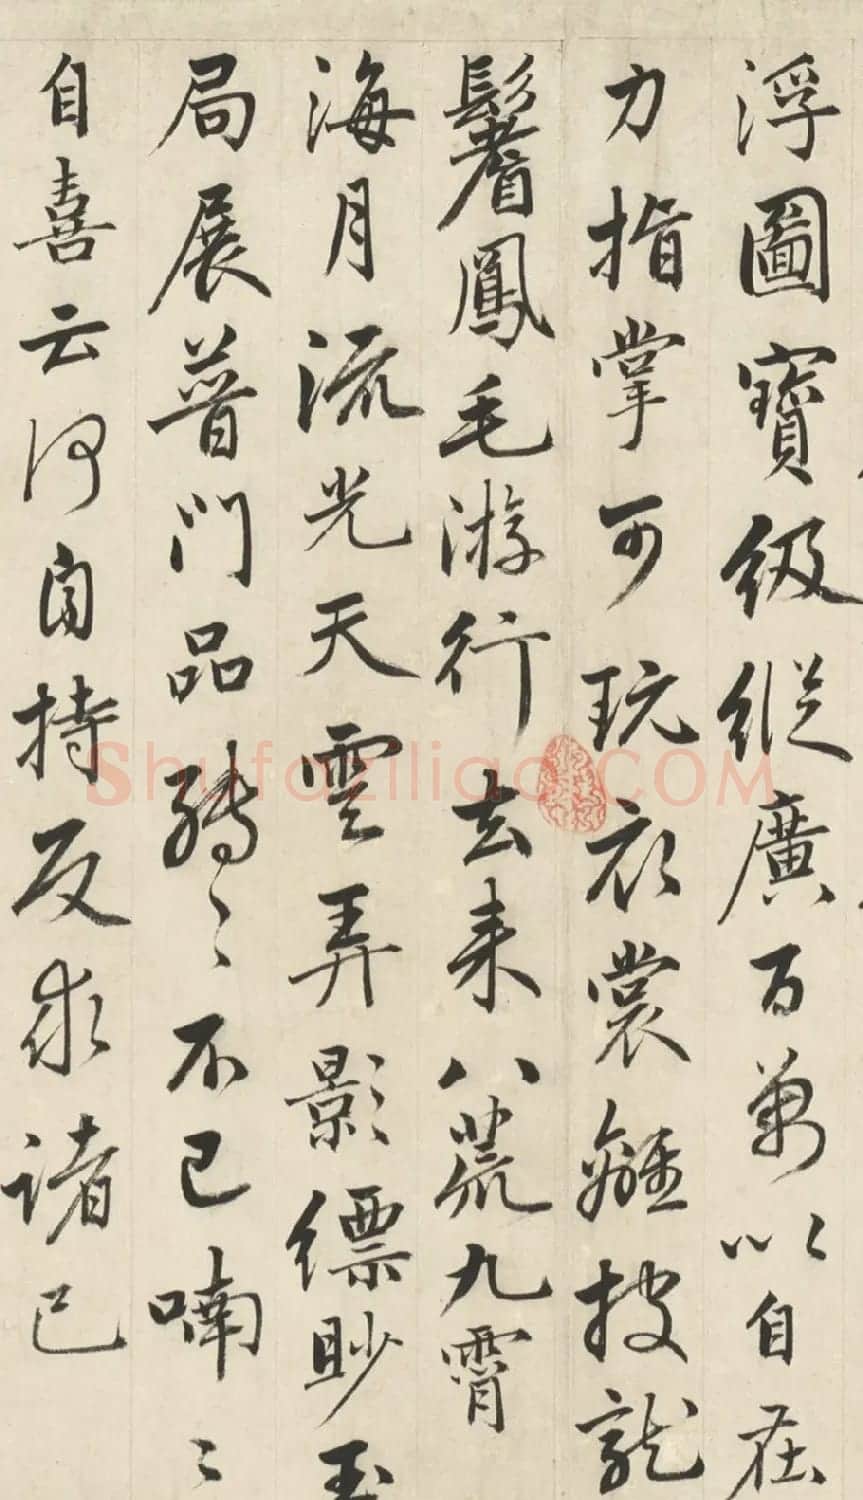 浮圖寶級縱廣百萬以自在
力指掌可玩衣裳離披龍
鬐鳳毛游行去来八荒九霄
海月流光天雲弄影縹眇玉
局展普門品轉〻不已喃〻
自喜云何自持反求諸己
Shufaziliao.COM